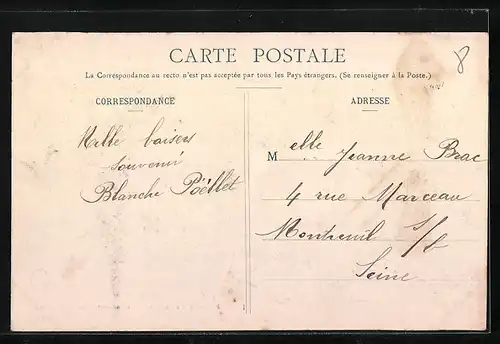 CARTE POSTALE
La Correspondance au recto n'est pas acceptée par tous les Pays étrangers. (Se renseigner à la Poste.)
CORRESPONDANCE
Mille baisers
souvenir
Blanche Poëllet
ADRESSE
Melle Jeanne Brac
4 rue Marceau
Montreuil s/b
Seine
8